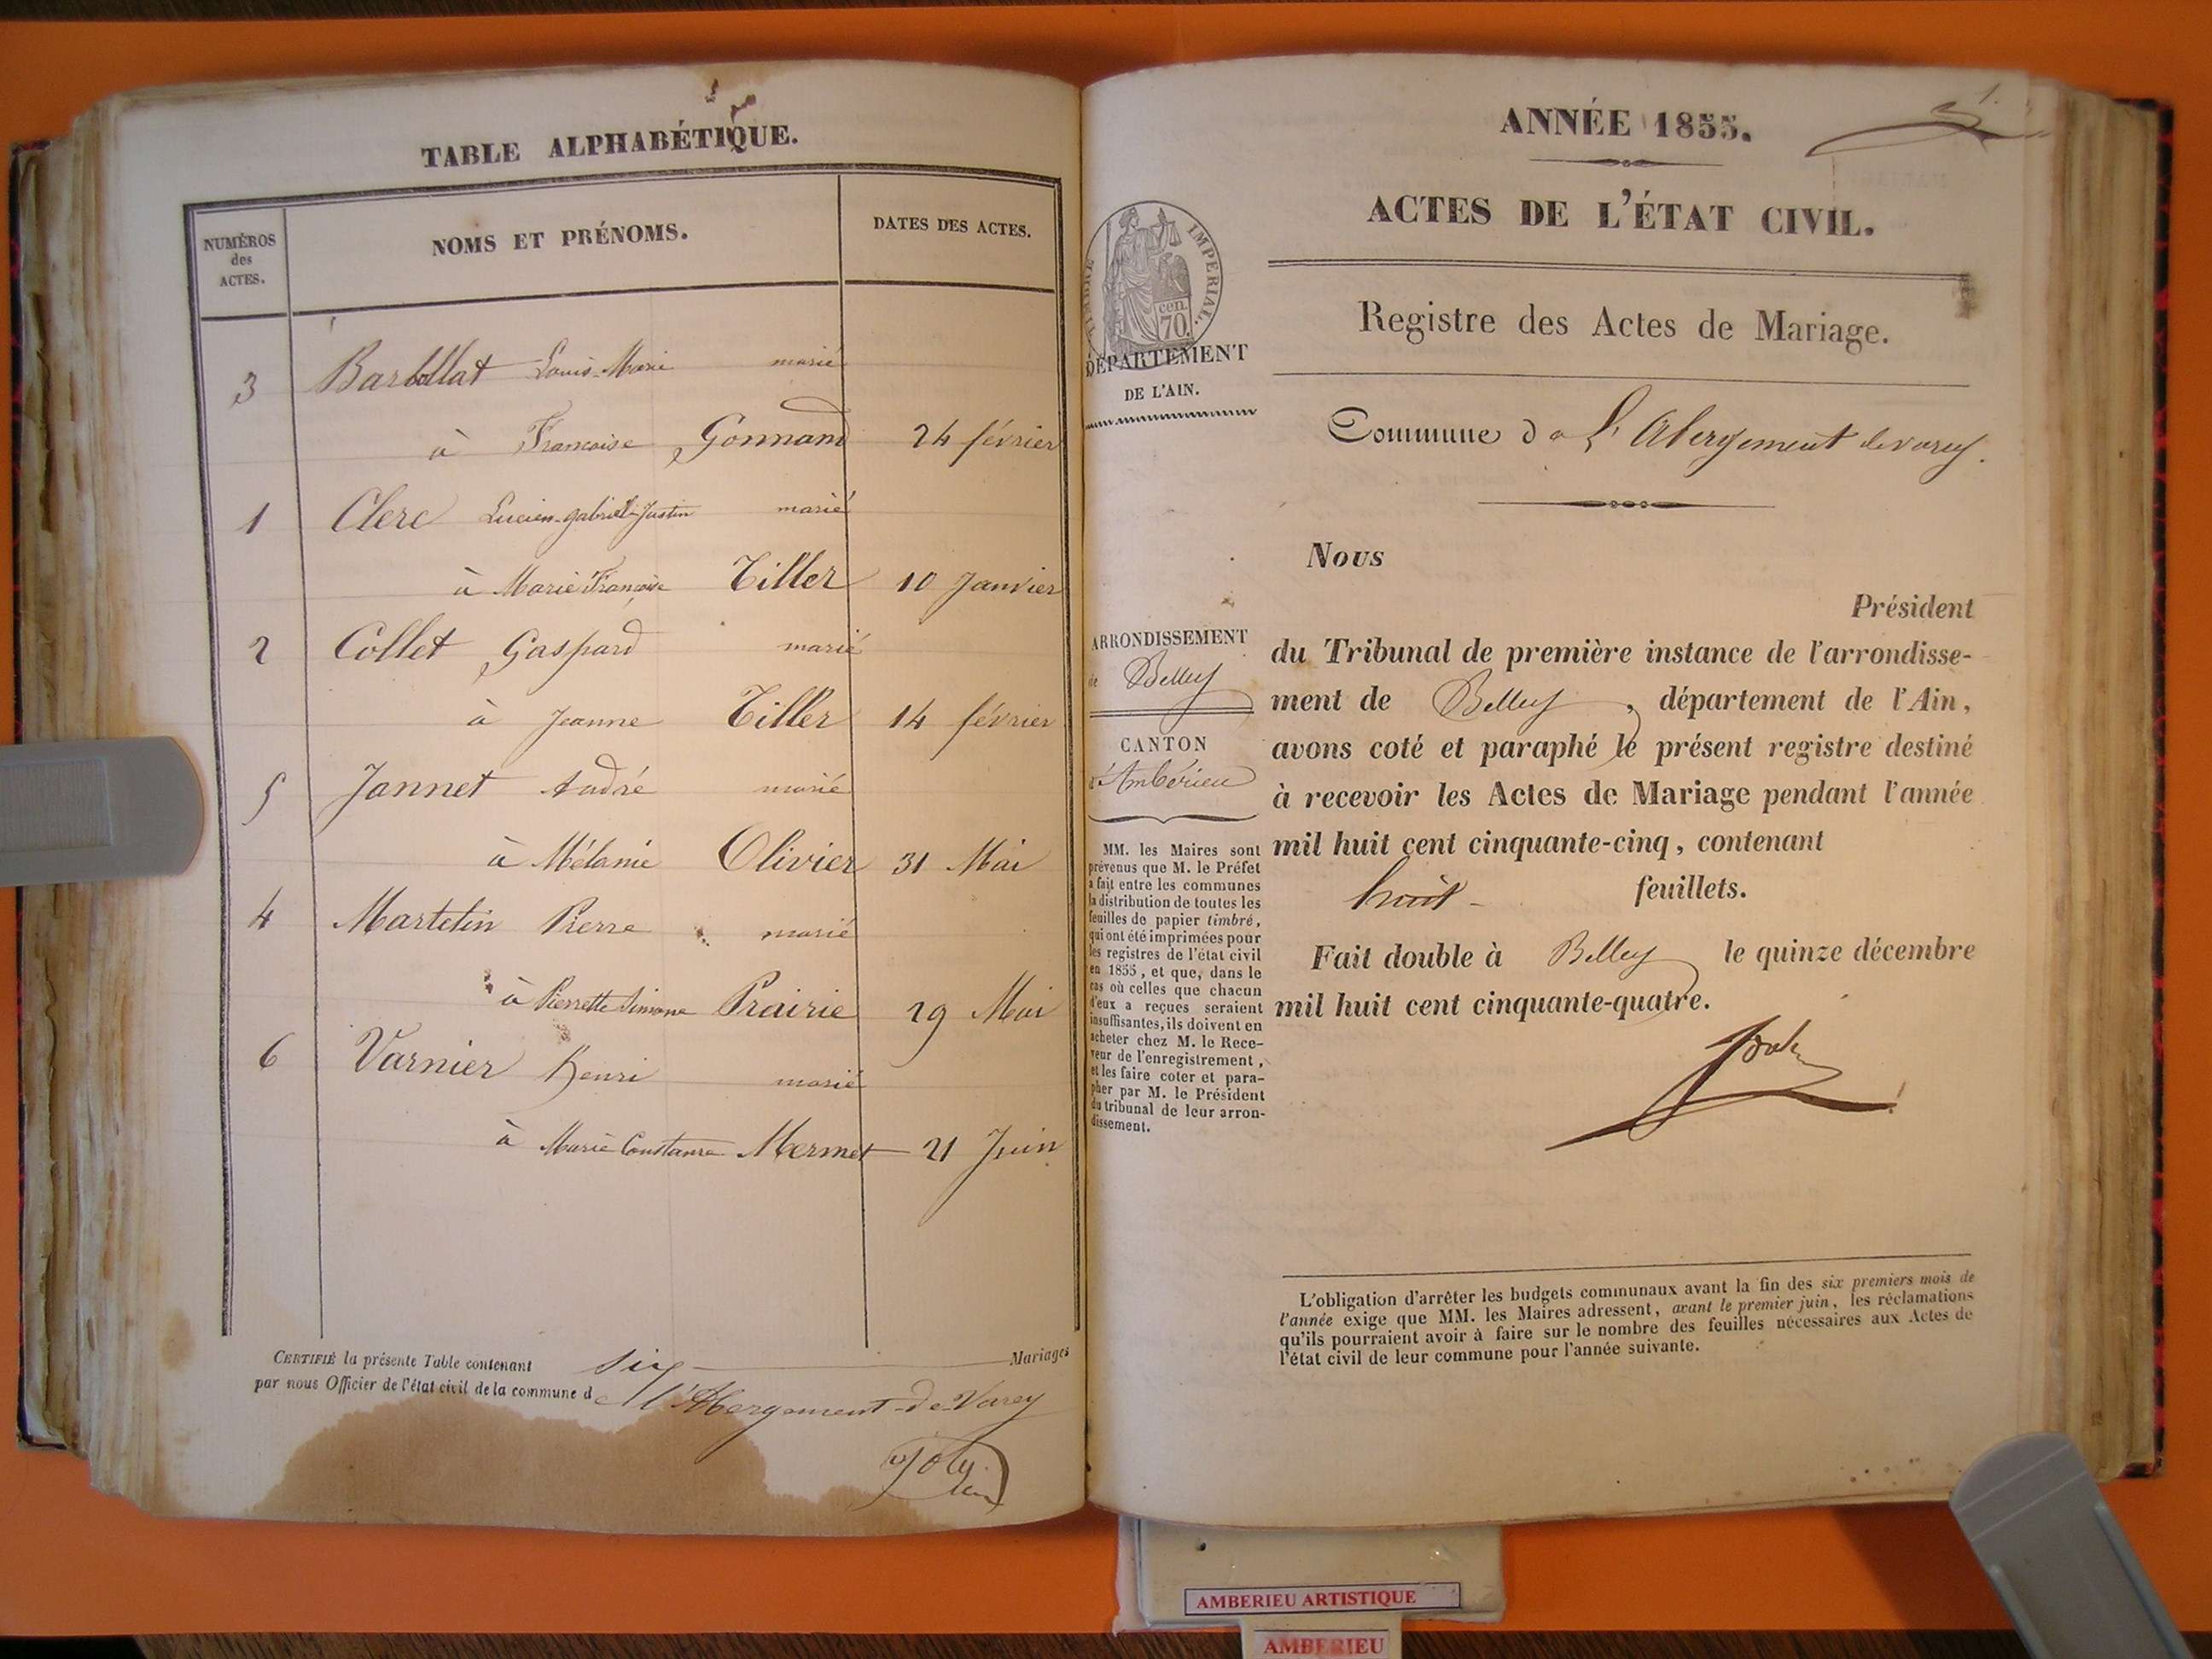 TABLE ALPHABÉTIQUE.
NUMÉROS
des
ACTES.
NOMS ET PRÉNOMS.
DATES DES ACTES.
3 Barbollat Louis-Marie marié
à Francoise Gonnand 24 février
1 Clerc Lucien-gabriel-Justin marié
à Marie Françoise Tiller 10 Janvier
2 Collet Gaspard marié
à Jeanne Tiller 14 février
5 Jannet André marié
à Mélanie Olivier 31 Mai
4 Martelin Pierre marié
à Pierrette Simone Prairie 29 Mai
6 Varnier henri marié
à Marie Constance Mermet 21 Juin
CERTIFIÉ la présente Table contenant six Mariages
par nous Officier de l'état civil de la commune de l'Abergement-de-Varey
Joly
ANNÉE 1855.
1.
ACTES DE L'ÉTAT CIVIL.
TIMBRE IMPÉRIAL
cen.
70.
DÉPARTEMENT
DE L'AIN.
Registre des Actes de Mariage.
Commune de L'Abergement de varey.
Nous
Président
du Tribunal de première instance de l'arrondisse-
ment de Belley, département de l'Ain,
avons coté et paraphé le présent registre destiné
à recevoir les Actes de Mariage pendant l'année
mil huit cent cinquante-cinq, contenant
huit feuillets.
Fait double à Belley le quinze décembre
mil huit cent cinquante-quatre.
ARRONDISSEMENT
de Belley
CANTON
d'Ambérieu
MM. les Maires sont
prévenus que M. le Préfet
a fait entre les communes
la distribution de toutes les
feuilles de papier timbré,
qui ont été imprimées pour
les registres de l'état civil
en 1855, et que, dans le
cas où celles que chacun
d'eux a reçues seraient
insuffisantes, ils doivent en
acheter chez M. le Rece-
veur de l'enregistrement,
et les faire coter et para-
pher par M. le Président
du tribunal de leur arron-
dissement.
L'obligation d'arrêter les budgets communaux avant la fin des six premiers mois de
l'année exige que MM. les Maires adressent, avant le premier juin, les réclamations
qu'ils pourraient avoir à faire sur le nombre des feuilles nécessaires aux Actes de
l'état civil de leur commune pour l'année suivante.
AMBERIEU ARTISTIQUE
AMBERIEU